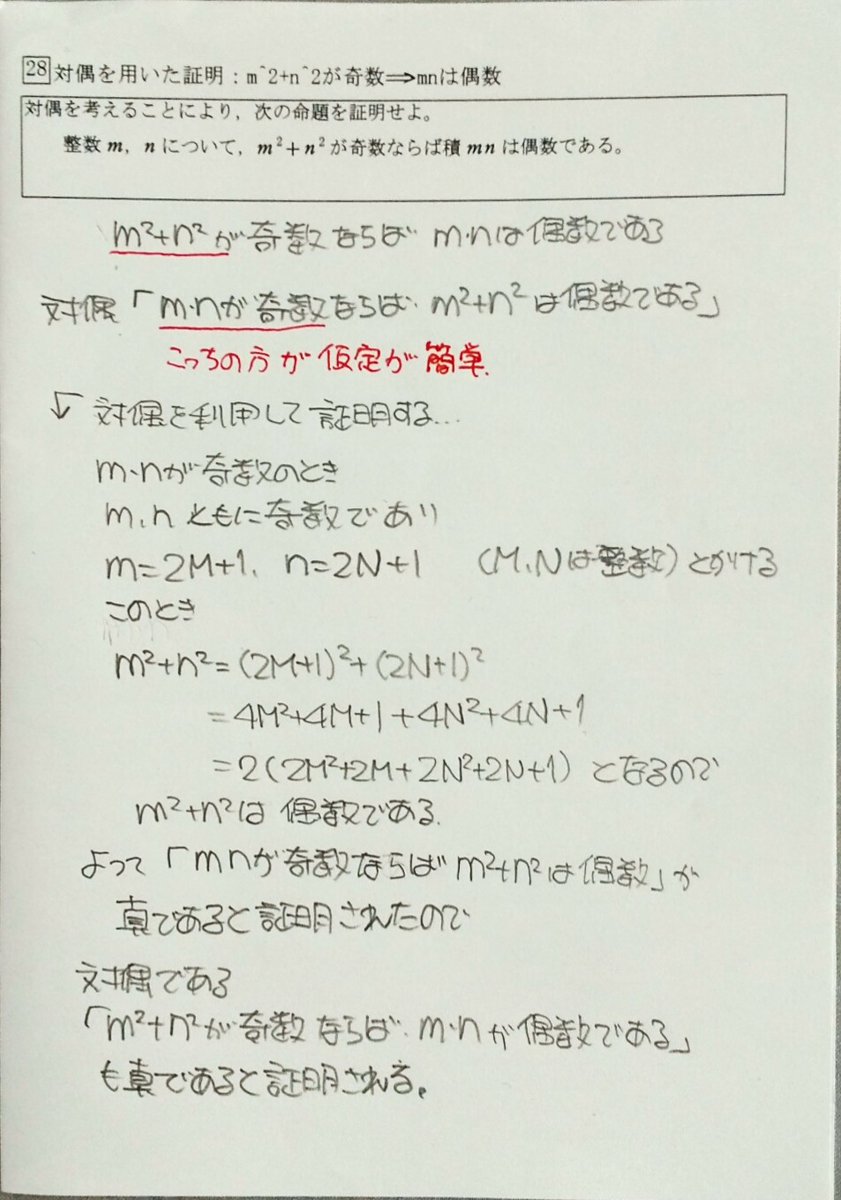 28 対偶を用いた証明：m^2+n^2が奇数⟹mnは偶数
対偶を考えることにより，次の命題を証明せよ。
整数 m，n について，m²＋n² が奇数ならば積 mn は偶数である。
m²+n²が奇数ならば m·nは偶数である
対偶「m·nが奇数ならば m²+n²は偶数である」
こっちの方が仮定が簡単.
↓ 対偶を利用して証明する...
m·nが奇数のとき
m,n ともに奇数であり
m=2M+1、n=2N+1 （M,Nは整数）とかける
このとき
m²+n²=(2M+1)²+(2N+1)²
=4M²+4M+1+4N²+4N+1
=2(2M²+2M+2N²+2N+1) となるので
m²+n²は偶数である.
よって「mnが奇数ならばm²+n²は偶数」が
真であると証明されたので
対偶である
「m²+n²が奇数ならば m·nが偶数である」
も真であると証明される。